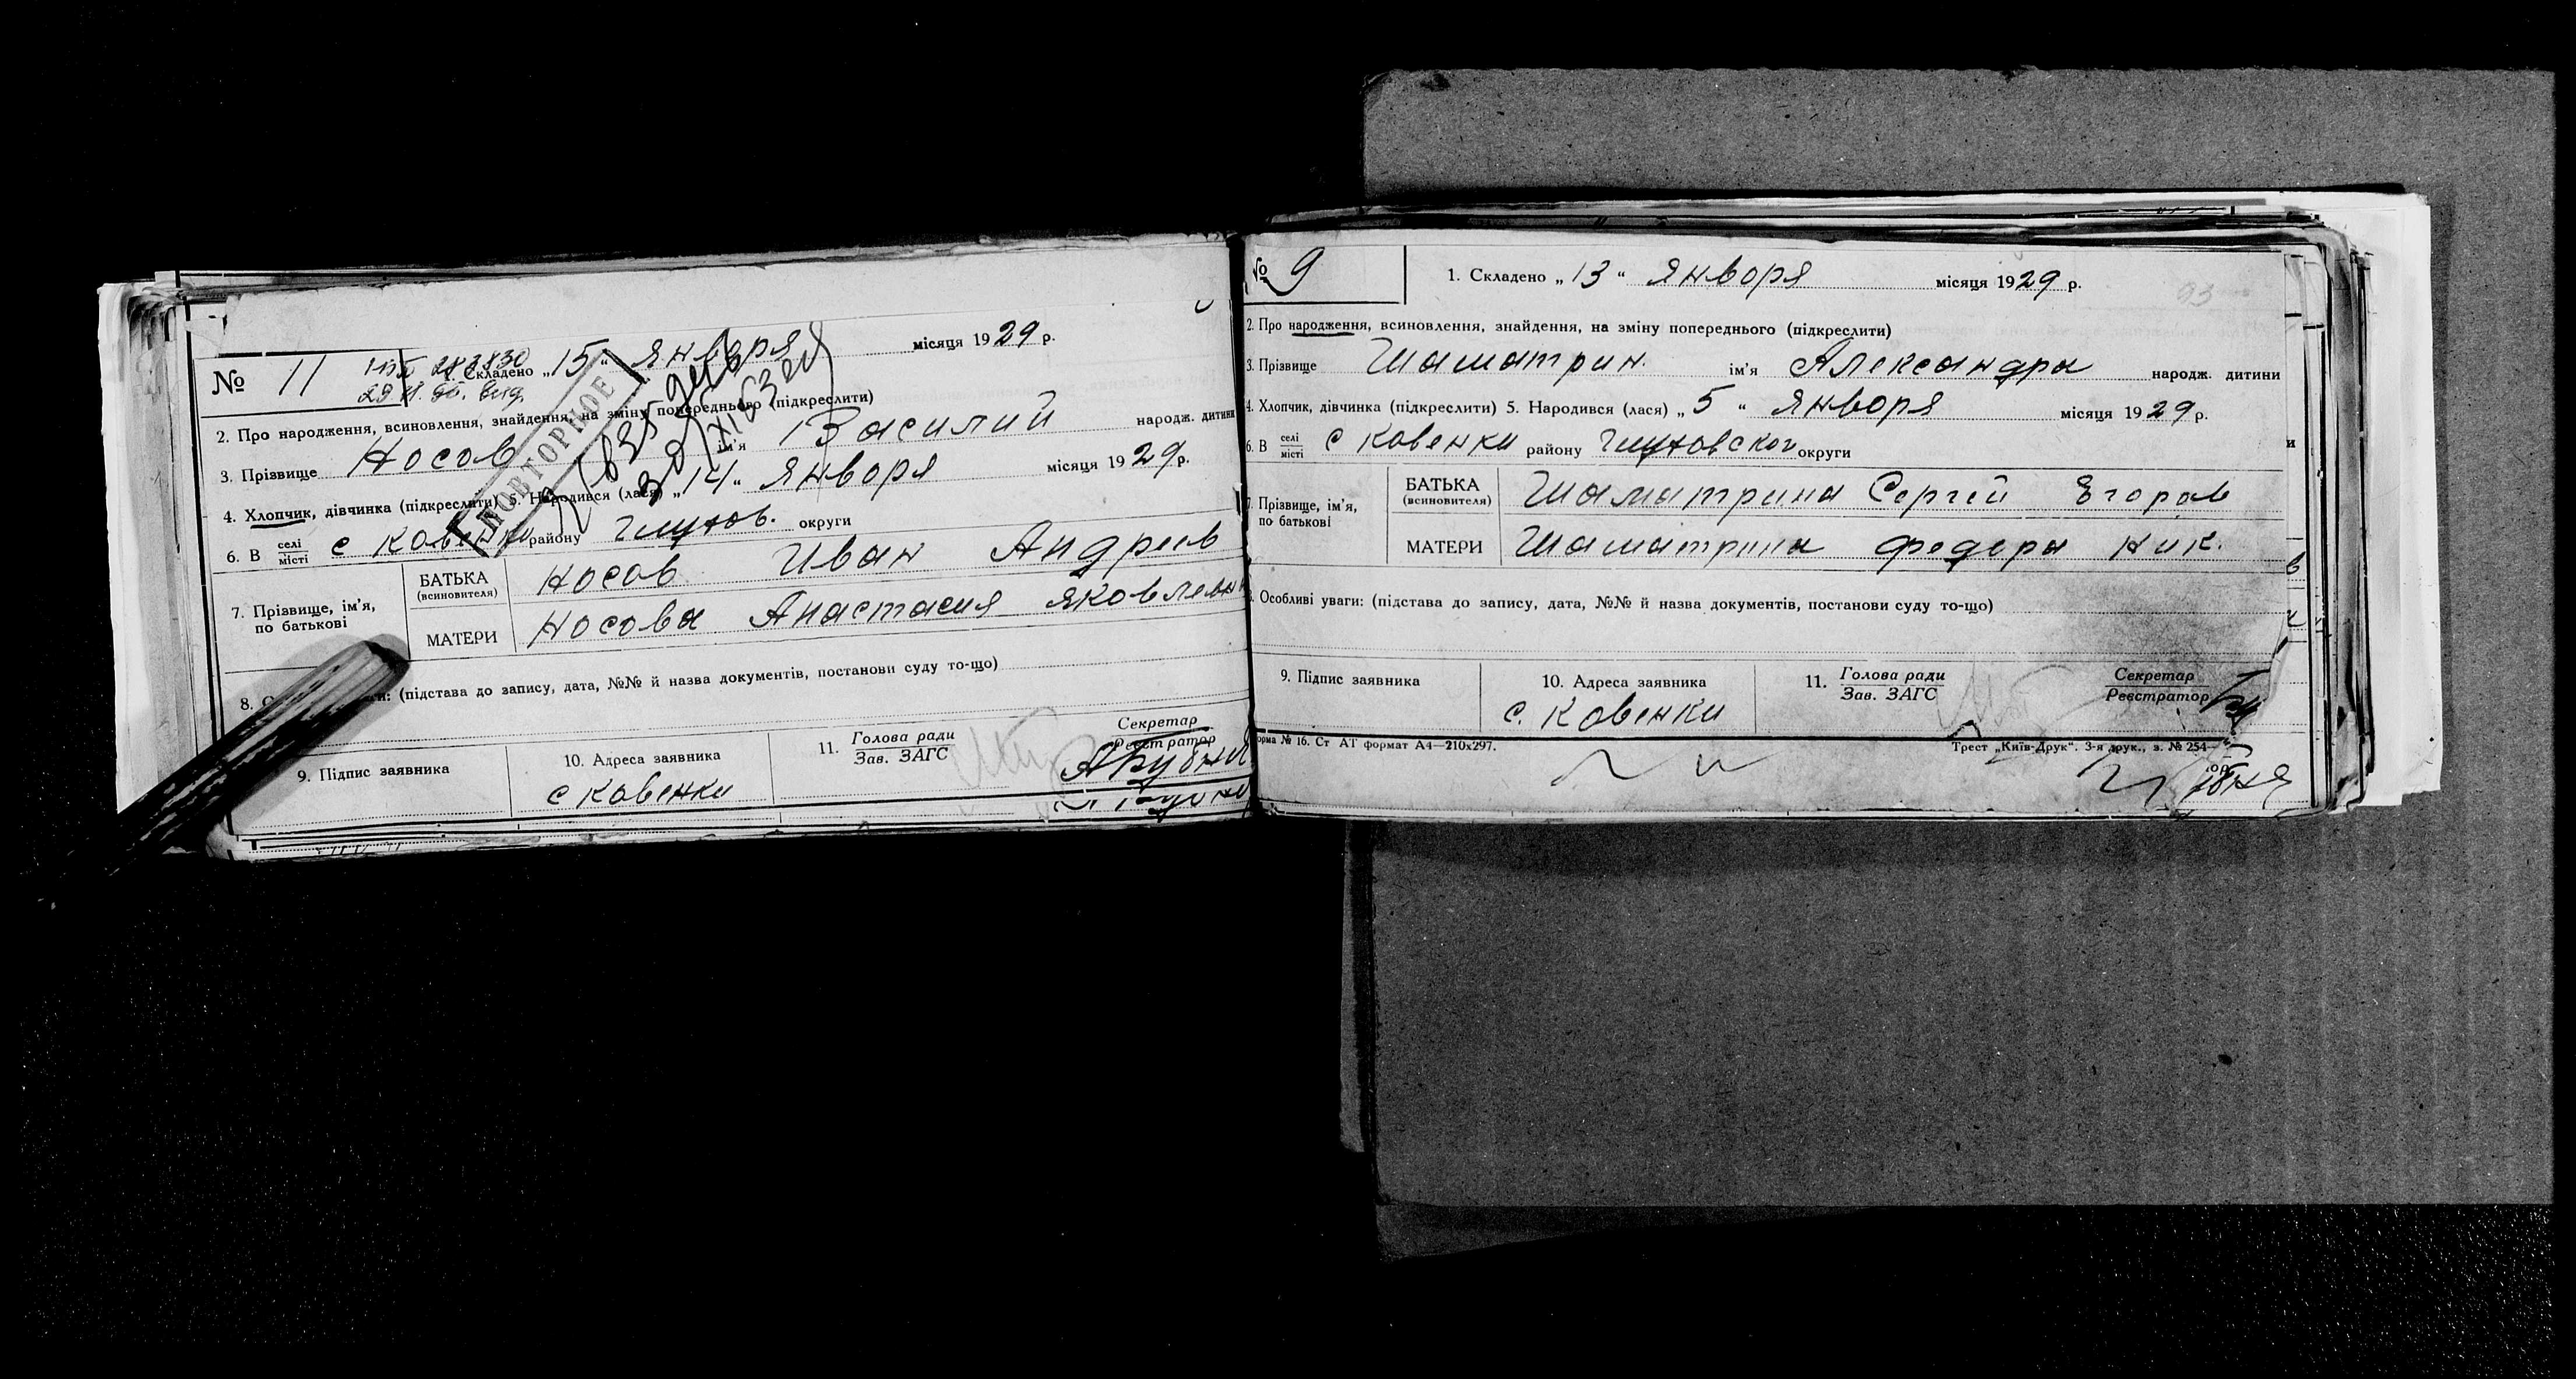 № 11 Складено „15“ января місяця 1929 р.
2. Про народження, всиновлення, знайдення, на зміну попереднього (підкреслити)
3. Прізвище Носов ім'я Василий народж. дитини
4. Хлопчик, дівчинка (підкреслити) 5. Народився (лася) „14“ января місяця 1929 р.
6. В селі місті с Ковенки району Глухов. округи
7. Прізвище, ім'я, по батькові
БАТЬКА (всиновителя) Носов Иван Андреев
МАТЕРИ Носова Анастасия Яковлевн
ПОВТОРНОЕ
(підстава до запису, дата, №№ й назва документів, постанови суду то-що)
9. Підпис заявника
10. Адреса заявника
с Ковенки
11. Голова ради
Зав. ЗАГС
Секретар
Реєстратор
№ 9 1. Складено „13“ января місяця 1929 р.
2. Про народження, всиновлення, знайдення, на зміну попереднього (підкреслити)
3. Прізвище Шаматрин. ім'я Александра народж. дитини
4. Хлопчик, дівчинка (підкреслити) 5. Народився (лася) „5“ января місяця 1929 р.
6. В селі місті с Ковенки району Глуховской округи
7. Прізвище, ім'я, по батькові
БАТЬКА (всиновителя) Шаматрина Сергей Егоров
МАТЕРИ Шаматрина Федора Ник.
Особливі уваги: (підстава до запису, дата, №№ й назва документів, постанови суду то-що)
9. Підпис заявника
10. Адреса заявника
с. Ковенки
11. Голова ради
Зав. ЗАГС
Секретар
Реєстратор
орма № 16. Ст АТ формат А4—210х297.
Трест „Київ-Друк“. 3-я друк., з. № 254—